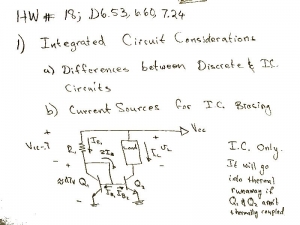 HW # 18; D6.53, 6.60, 7.24
1) Integrated Circuit Considerations
a) Differences between Discrete & I.C.
Circuits
b) Current Sources for I.C. Biasing
Vcc
Vcc-.7
+
-
R1
Load
+
-
I.C. Only.
It will go
into thermal
runaway if
Q1 & Q2 aren't
thermally coupled
+
-
Q1
Q2